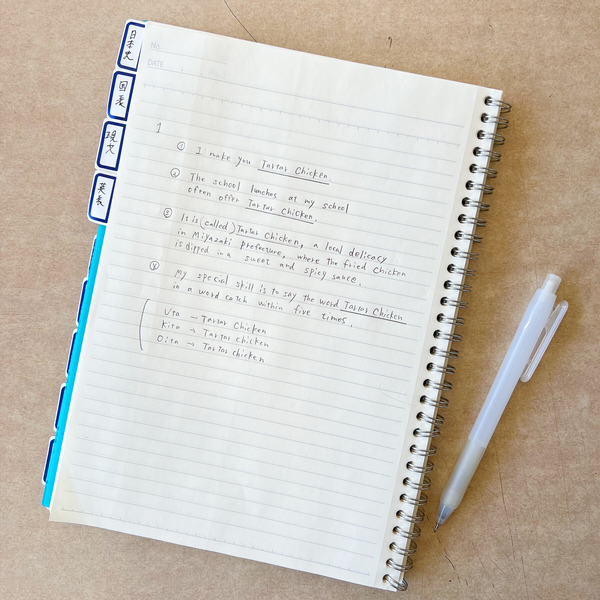 日本史
国表
現文
英表
No.
DATE
1
① I make you Tartar Chicken.
② The school lunches at my school
often offer Tartar Chicken.
③ It is (called) Tartar Chicken, a local delicacy
in Miyazaki prefecture, where the fried chicken
is dipped in a sweet and spicy sauce.
④ My special skill is to say the word Tartar Chicken
in a word catch within five times.
Uta → Tartar Chicken
Kita → Tartar chicken
Oita → Tartar chicken